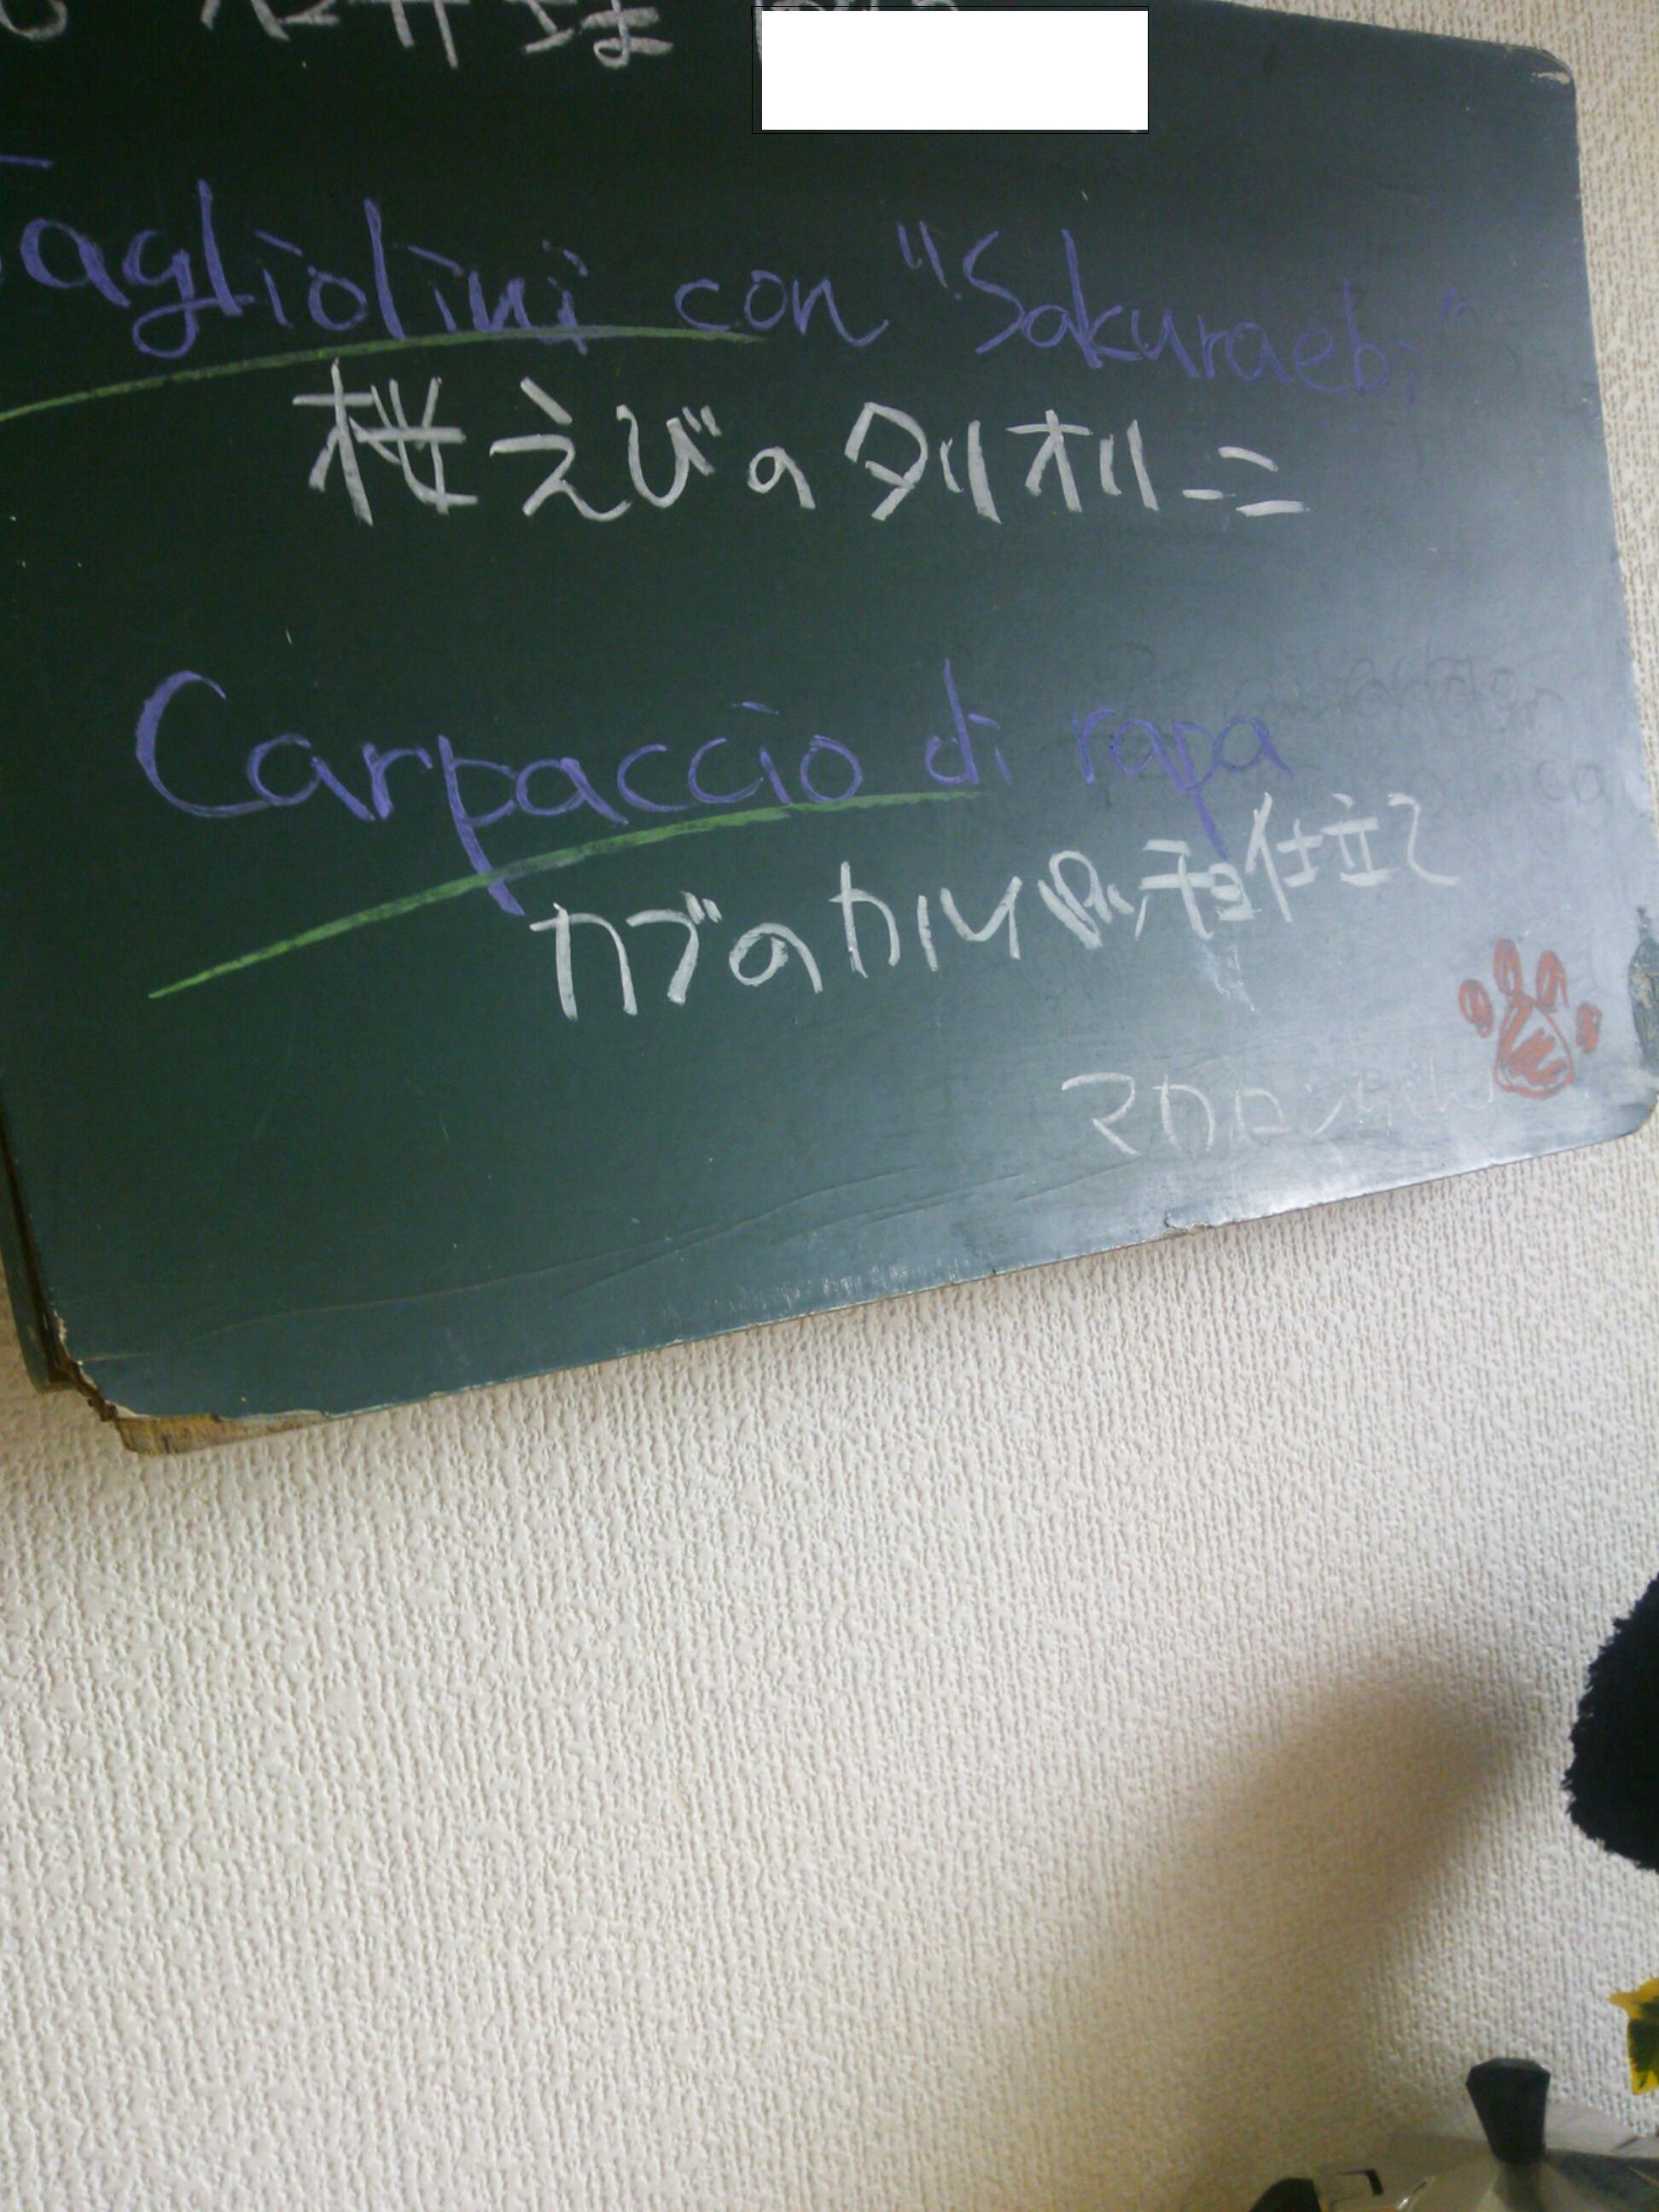 Tagliolini con "Sakuraebi"
桜えびのタリオリーニ
Carpaccio di rapa
カブのカルパッチョ仕立て
マカロン